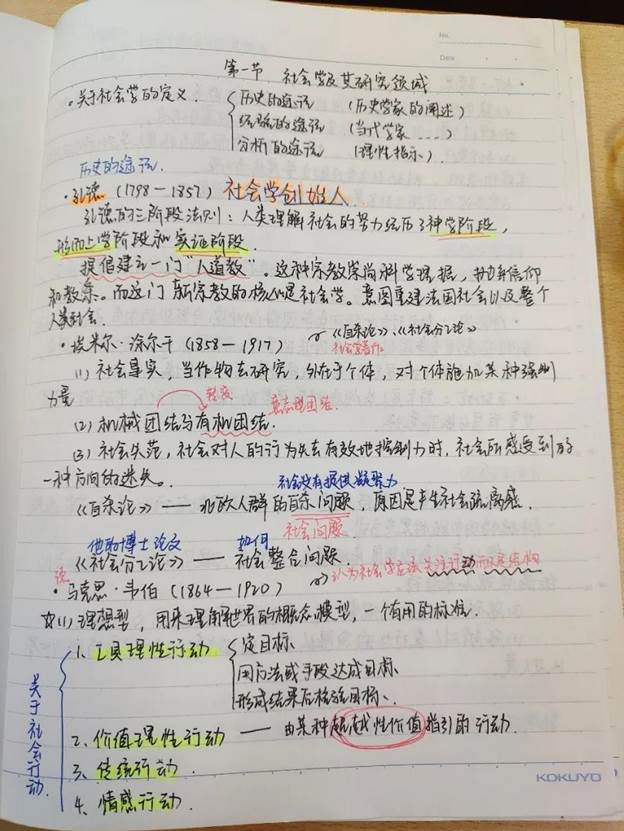 No.
Date
第一节 社会学及其研究领域
·关于社会学的定义. { 历史的途径 (历史学家的阐述)
经验的途径 (当代学家 ……)
分析的途径 (理性指示).
历史的途径.
·孔德 (1798—1857) 社会学创始人
孔德的三阶段法则：人类理解社会的努力经历了神学阶段，
形而上学阶段和实证阶段.
提倡建立一门“人道教”。这种宗教崇尚科学理据，抛弃信仰
和教条。而这门新宗教的核心是社会学。意图重建法国社会以及整个
人类社会.
·埃米尔·涂尔干 (1858—1917) 《自杀论》、《社会分工论》
社会学著作
(1) 社会事实，当作物去研究，外在于个体，对个体施加某种强制
力量
转变 意志型团结.
(2) 机械团结与有机团结.
(3) 社会失范，社会对人的行为失去有效地控制力时，社会所感受到的
一种方向的迷失。
社会没有提供凝聚力
《自杀论》—— 北欧人群的自杀问题，原因是产生社会疏离感.
社会问题
他的博士论文 如何
《社会分工论》—— 社会整合问题.
·马克思·韦伯 (1864—1920) 认为社会学应该关注行动而不是结构
☆(1) 理想型，用来理解世界的概念模型，一个有用的标准.
关于社会行动.
1. 工具理性行动 { 定目标.
用方法或手段达成目标
形成结果后检验目标.
2. 价值理性行动 —— 由某种超越性价值指引的行动.
3. 传统行动.
4. 情感行动.
KOKUYO